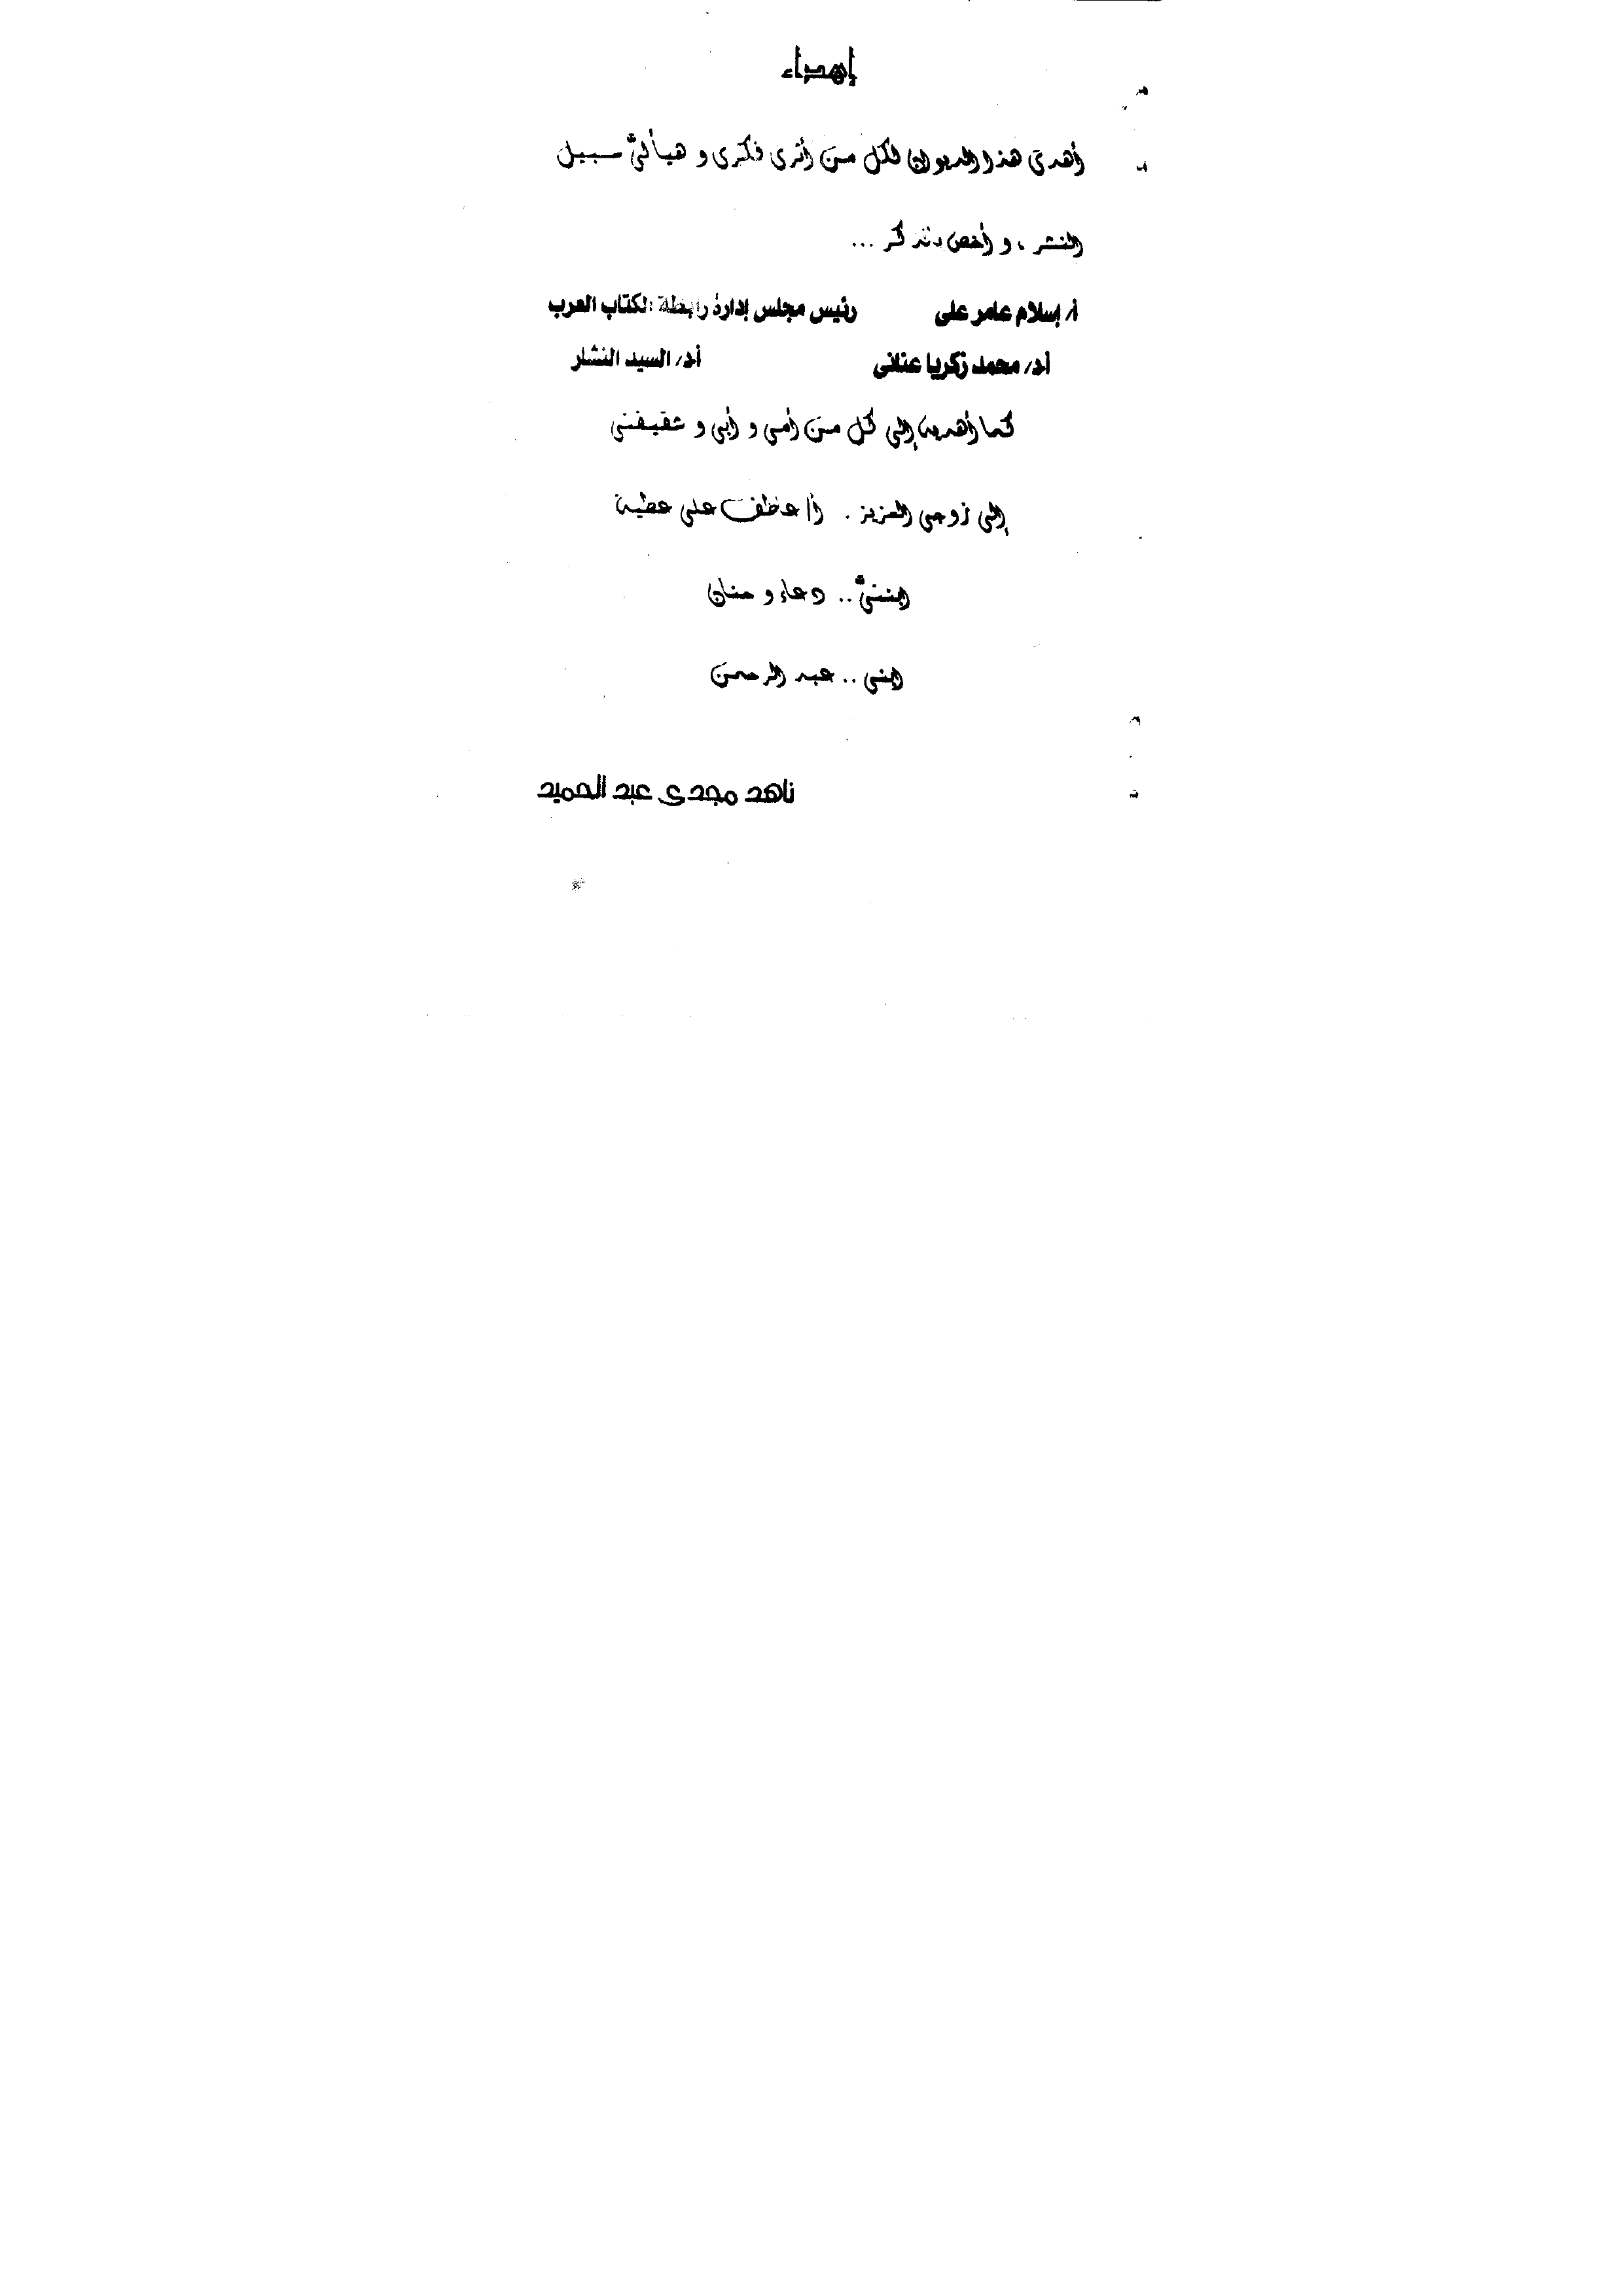 إهداء
أهدى هذا الديوان لكل من أثرى فكرى و هيأ لىّ سبيل
النشر ، و أخص بالذكر ...
أ/ إسلام عامر على رئيس مجلس إدارة رابطة الكتاب العرب
أد/ محمد زكريا عنانى أد/ السيد النشار
كما أهديه إلى كل من أمى و أبى و شقيقتى
إلى زوجى العزيز . أ/ عاطف على عطية
إبنتىّ .. دعاء و حنان
إبنى .. عبد الرحمن
ناهد مجدى عبد الحميد